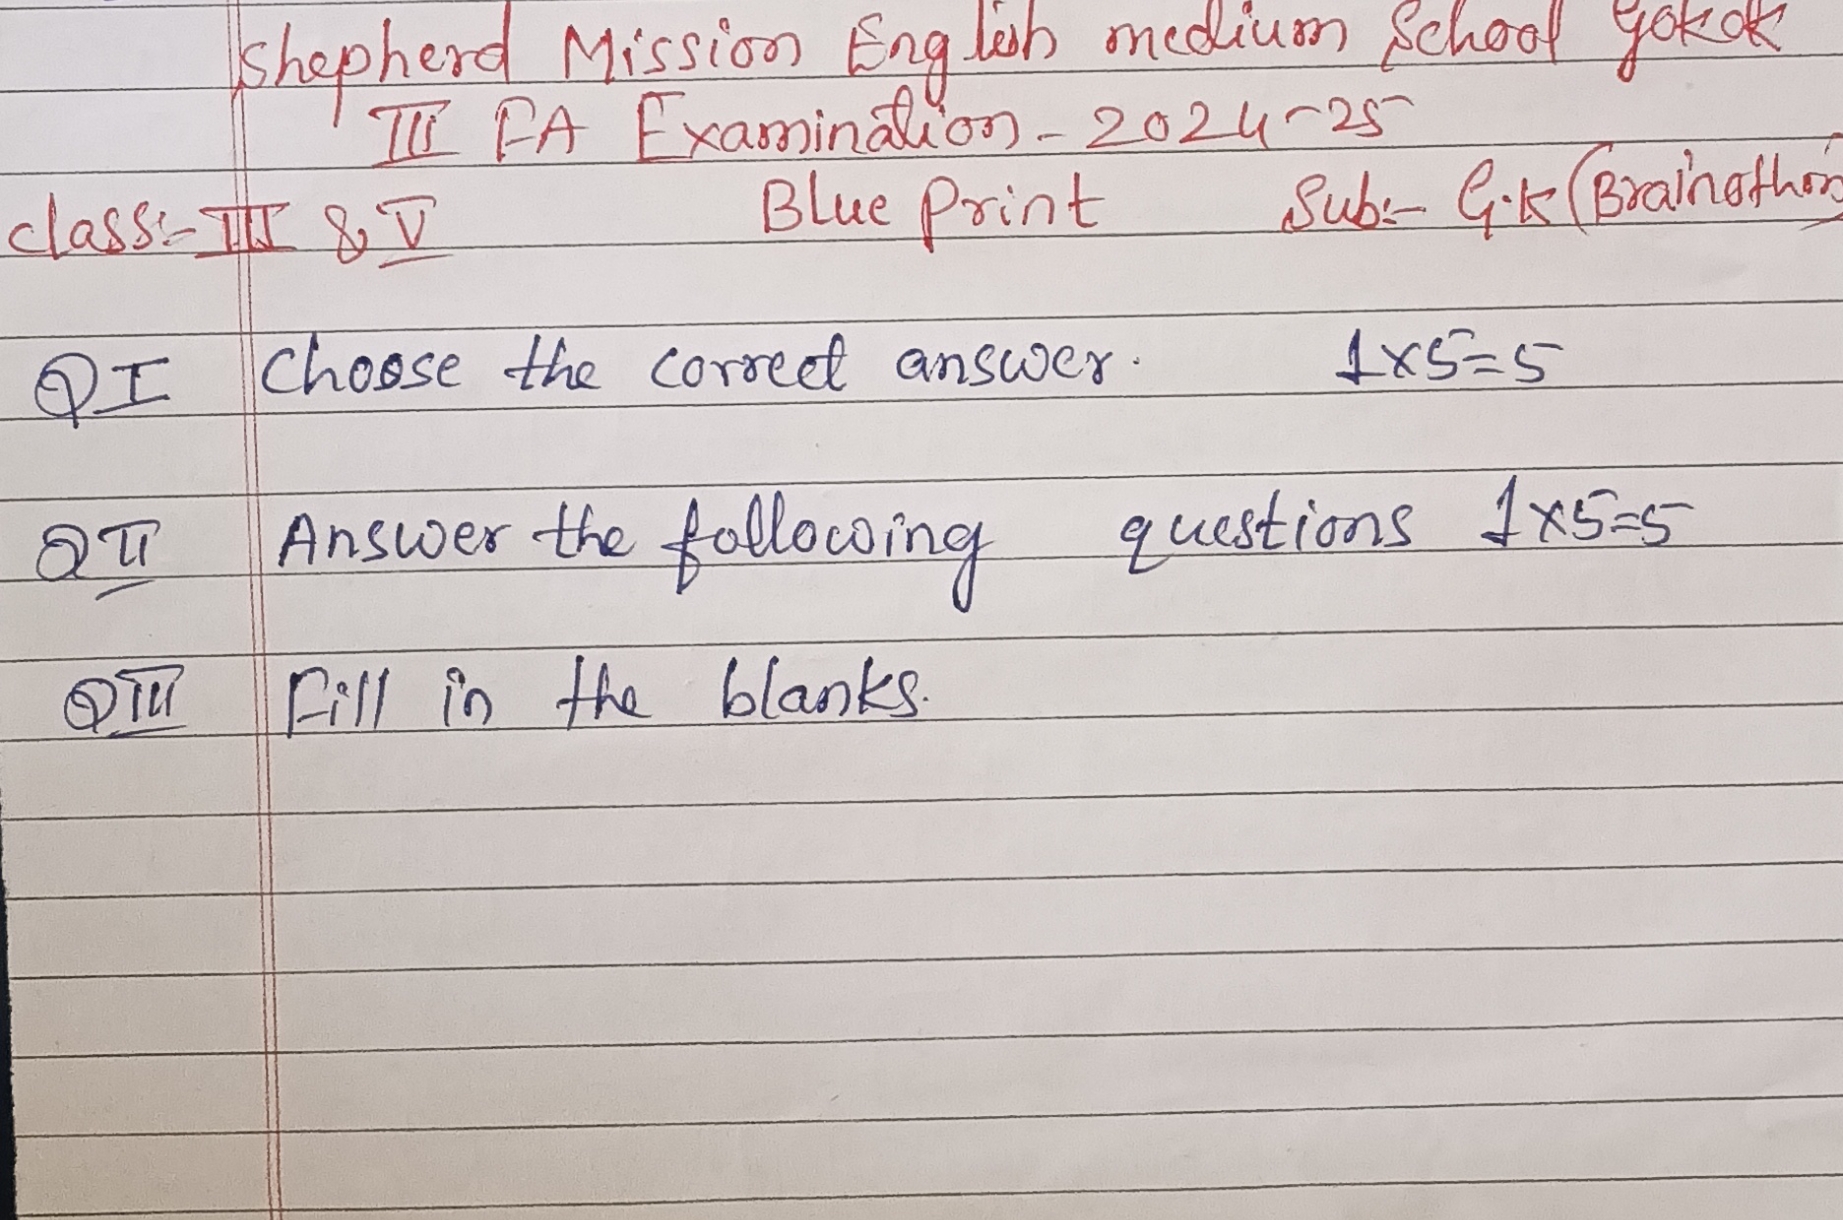 Shepherd Mission English medium School Gokak
III FA Examination - 2024-25
class:- III & V Blue Print Sub:- G.K (Brainothon)
QI Choose the correct answer. 1x5=5
QII Answer the following questions 1x5=5
QIII Fill in the blanks.